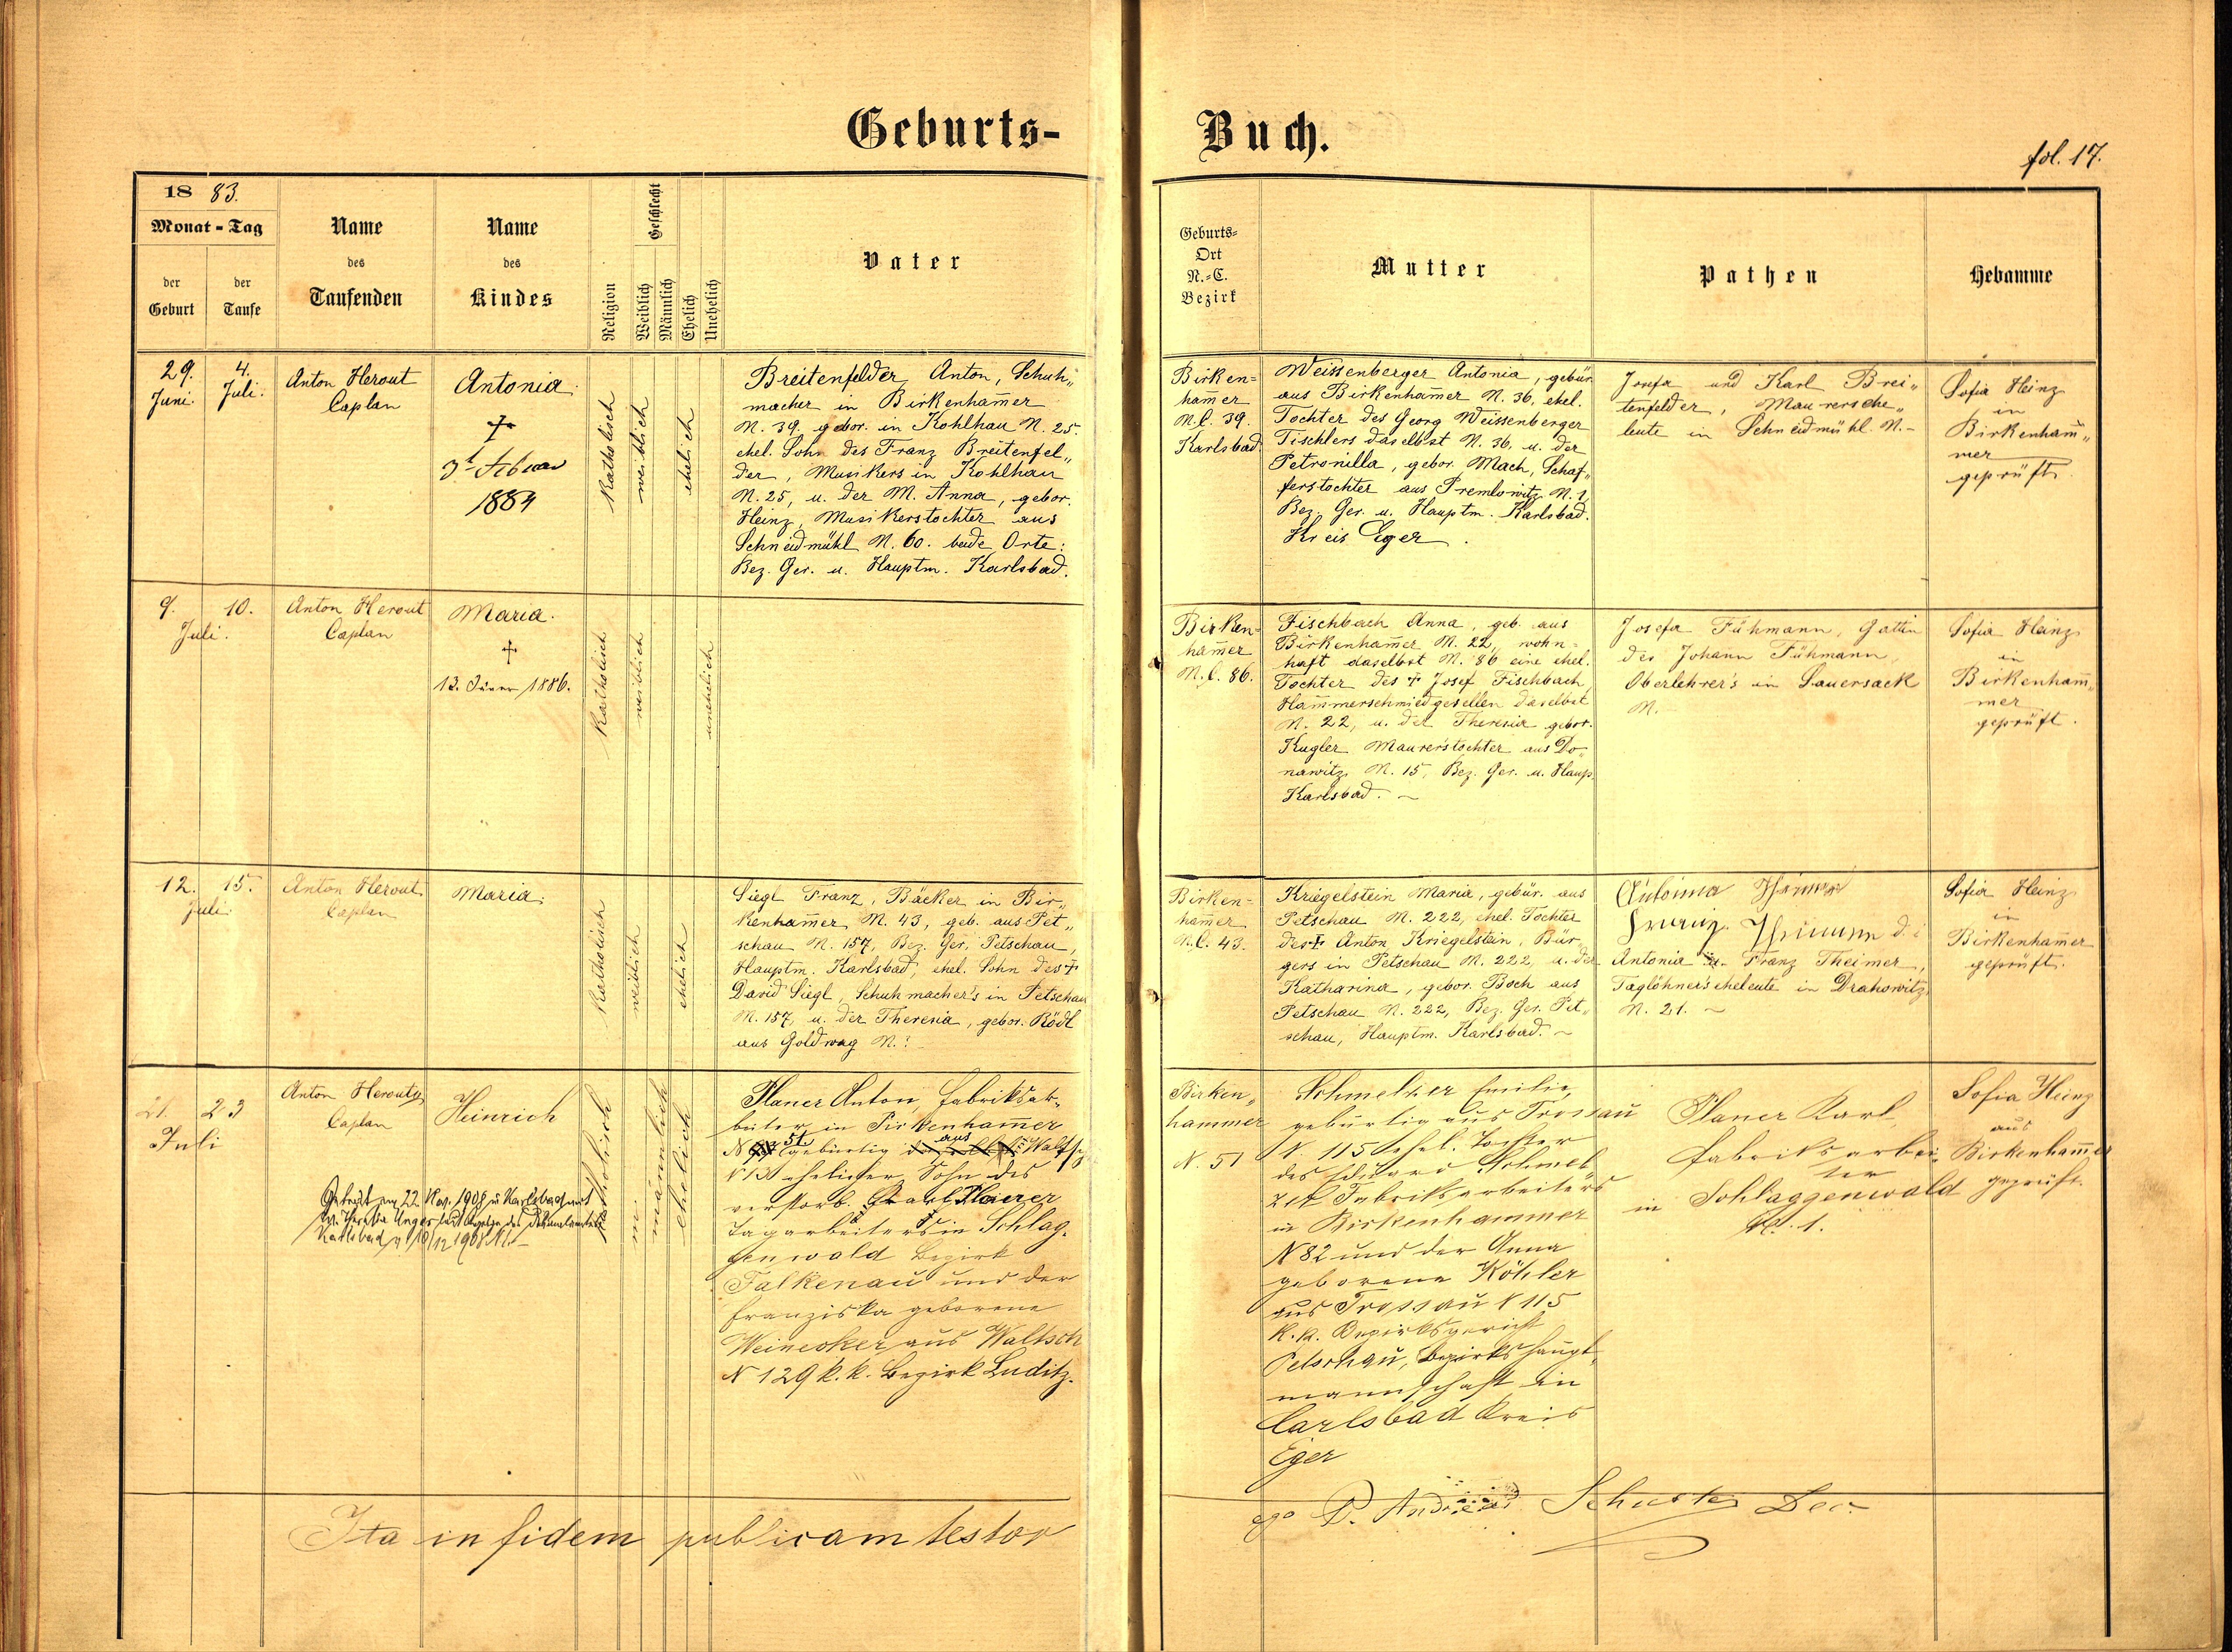 Geburts-
Buch.
fol. 17.
1883.
Monat - Tag
der Geburt
der Taufe
Name des Taufenden
Name des Kindes
Religion
Geschlecht
Weiblich
Männlich
Ehelich
Unehelich
Vater
Geburts=
Ort
N.=C.
Bezirk
Mutter
Pathen
Hebamme
29. Juni.
4. Juli.
Anton Herout
Caplan
Antonia.
†
3t Februar
1884
Katholisch
weiblich
ehelich
Breitenfelder Anton, Schuh„
macher in Birkenham̄er
N. 39. gebor. in Kohlhau N. 25.
ehel. Sohn des Franz Breitenfel„
der, Musikers in Kohlhau
N. 25, u. der M. Anna, gebor.
Heinz, Musikerstochter aus
Schneidmühl N. 60. beide Orte:
Bez. Ger. u. Hauptm. Karlsbad.
Birken=
ham̄er
N.C. 39.
Karlsbad.
Weissenberger Antonia, gebür.
aus Birkenham̄er N. 36, ehel.
Tochter des Georg Weissenberger
Tischlers daselbst N. 36. u. der
Petronilla, gebor. Mach, Schaf„
ferstochter aus Premlowitz N. 1,
Bez. Ger. u. Hauptm. Karlsbad.
Kreis Eger.
Josefa und Karl Brei„
tenfelder, Maurersche„
leute in Schneidmühl N.-
Sofia Heinz
in
Birkenham̄„
mer
geprüft.
9.
10.
Juli.
Anton Herout
Caplan
Maria.
†
13. Jänner 1886.
Katholisch
weiblich
unehelich
Birken=
ham̄er
N.C. 86.
Fischbach Anna, geb. aus
Birkenham̄er N. 22, wohn=
haft daselbst N. 86 eine ehel.
Tochter des † Josef Fischbach
Ham̄merschmiedgesellen daselbst
N. 22, u. der Theresia gebor.
Kugler Maurerstochter aus Do
nawitz N. 15, Bez. Ger. u. Haup.
Karlsbad. ~
Josefa Fühmann, Gattin
des Johann Fühmann,
Oberlehrer's in Sauersack
N.
Sofia Heinz
in
Birkenham̄„
mer
geprüft.
12.
15.
Juli.
Anton Herout
Caplan
Maria.
Katholisch
weiblich
ehelich
Siegl Franz, Bäcker in Bir„
kenham̄er N. 43, geb. aus Pet„
schau N. 157, Bez. Ger. Petschau,
Hauptm. Karlsbad, ehel. Sohn des †
David Siegl, Schuhmacher's in Petschau
N. 157, u. der Theresia, gebor. Rödl
aus Goldwag N.?
Birken=
ham̄er
N.C. 43.
Kriegelstein Maria, gebür. aus
Petschau N. 222, ehel. Tochter
des † Anton Kriegelstein, Bür„
gers in Petschau N. 222, u. der
Katharina, gebor. Boch aus
Petschau N. 222, Bez. Ger. Pet„
schau, Hauptm. Karlsbad. ~
Antonia
Franz
Antonia u. Franz Theimer,
Taglöhner's eheleute in Drahowitz,
N. 21. ~
Sofia Heinz
in
Birkenham̄er
geprüft.
21.
23
Juli
Anton Herout,
Caplan
Heinrich
Getraut am 22 Nov. 1908 in Karlsbad
mit Theresia Unger laut Anzeige des Dekanalamtes
Karlsbad
Katholisch
männlich
ehelich
Planer Anton, Fabriksar„
beiter in Pirkenham̄er
N 51. gebürtig aus Waltsch
N 13 ehelicher Sohn des
verstorb. Karl Planer
Tagarbeiters in Schlag„
genwald Bezirk
Falkenau und der
Franziska geborene
Weinesker aus Waltsch
N 129 k. k. Bezirk Luditz.
Birken„
hammer
N. 51
Schmelzer Emilie,
gebürtig aus Trossau
N. 115 ehel. Tochter
des Eduard Schmel„
zer Fabriksarbeiters
in Birkenhammer
N 82 und der Anna
geborene Köhler
aus Trossau N 115
k. k. Bezirksgericht
Petschau, Bezirkshaupt„
mannschaft in
Carlsbad Kreis
Eger
Planer Karl,
Fabriksarbei„
ter
in Schlaggenwald
N. 1.
Sofia Heinz
aus
Birkenham̄er
geprüft.
Ita in fidem publicam testor
ego P. Andreas Schuster Dec.